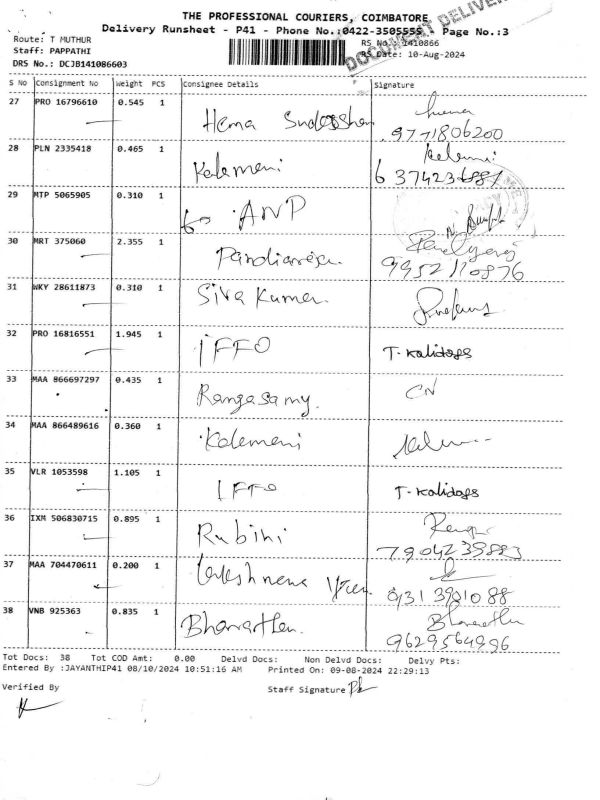 THE PROFESSIONAL COURIERS, COIMBATORE
Delivery Runsheet - P41 - Phone No.:0422-3505555 Page No.:3
Route: T MUTHUR
RS No.: 1410866
Staff: PAPPATHI
RS Date: 10-Aug-2024
DRS No.: DCJB141086603
DOCUMENT DELIVER
S No Consignment No Weight PCS Consignee Details Signature
27 PRO 16796610 0.545 1 Hema Sudesshan
9771806200
28 PLN 2335418 0.465 1 Kalemani
6 374236881
29 MTP 5065905 0.310 1 to ANP
30 MRT 375060 2.355 1 Pandiaraja
9952110876
31 WKY 28611873 0.310 1 Siva Kumar
32 PRO 16816551 1.945 1 IFFO T-Kalidass
33 MAA 866697297 0.435 1 Rangasamy. CN
34 MAA 866489616 0.360 1 Kalemani
35 VLR 1053598 1.105 1 IFFO T-Kalidass
36 IXM 506830715 0.895 1 Rubini
7904239883
37 MAA 704470611 0.200 1
38 VNB 925363 0.835 1 Bharathen. Bharathen
9629564996
Tot Docs: 38 Tot COD Amt: 0.00 Delvd Docs: Non Delvd Docs: Delvy Pts:
Entered By :JAYANTHIP41 08/10/2024 10:51:16 AM Printed On: 09-08-2024 22:29:13
Verified By Staff Signature